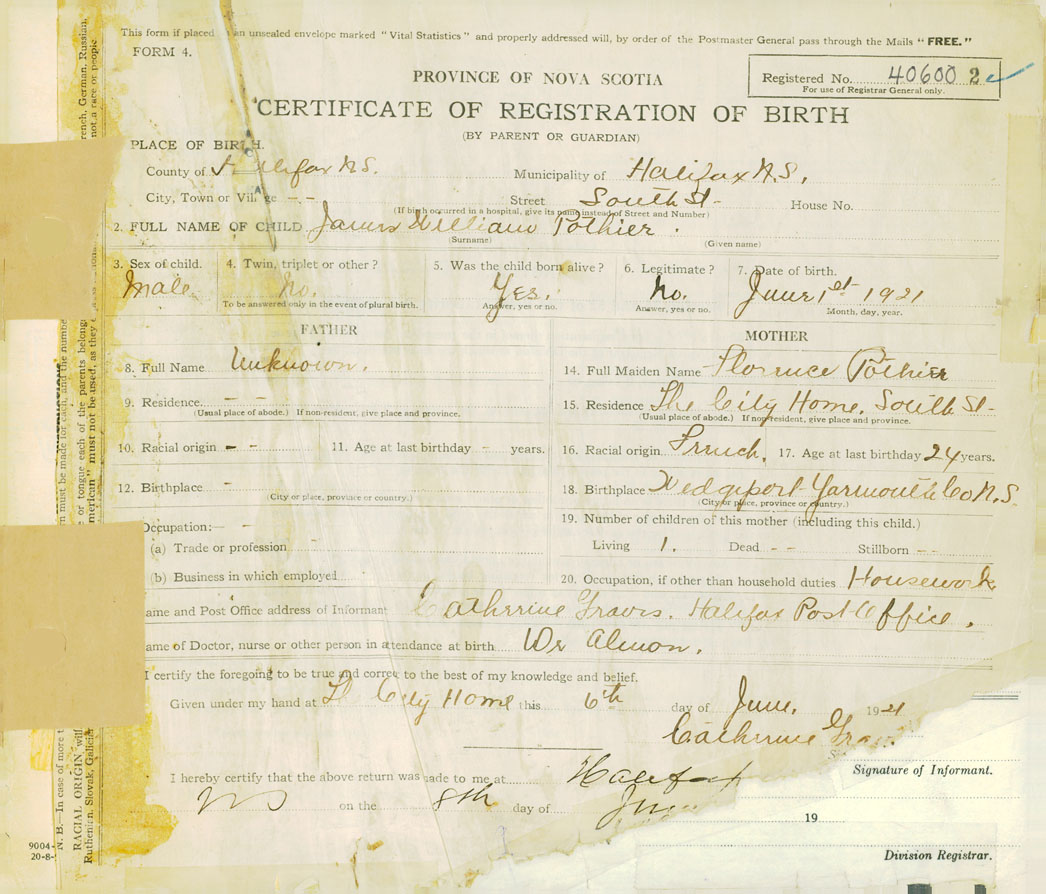 This form if placed in an unsealed envelope marked "Vital Statistics" and properly addressed will, by order of the Postmaster General pass through the Mails "FREE."
FORM 4.
PROVINCE OF NOVA SCOTIA
Registered No. 40600 2
For use of Registrar General only.
CERTIFICATE OF REGISTRATION OF BIRTH
(BY PARENT OR GUARDIAN)
PLACE OF BIRTH.
County of Halifax N.S. Municipality of Halifax N.S,
City, Town or Village - - Street South St- House No.
(If birth occurred in a hospital, give its name instead of Street and Number)
2. FULL NAME OF CHILD James William Pothier.
(Surname) (Given name)
3. Sex of child. 4. Twin, triplet or other? 5. Was the child born alive? 6. Legitimate? 7. Date of birth.
Male No. Yes. No. June 1st 1921
To be answered only in the event of plural birth. Answer, yes or no. Answer, yes or no. Month, day, year.
FATHER MOTHER
8. Full Name Unknown. 14. Full Maiden Name Florence Pothier
9. Residence - - 15. Residence The City Home, South St-
(Usual place of abode.) If non-resident, give place and province. (Usual place of abode.) If non-resident, give place and province.
10. Racial origin - - 11. Age at last birthday - years. 16. Racial origin French. 17. Age at last birthday 24 years.
12. Birthplace - 18. Birthplace Wedgeport Yarmouth Co N.S.
(City or place, province or country.) (City or place, province or country.)
Occupation: - - 19. Number of children of this mother (including this child.)
(a) Trade or profession Living 1. Dead - - Stillborn - -
(b) Business in which employed 20. Occupation, if other than household duties Housework
ame and Post Office address of Informant Catherine Graves. Halifax Post Office.
ame of Doctor, nurse or other person in attendance at birth Dr Almon.
I certify the foregoing to be true and correct to the best of my knowledge and belief.
Given under my hand at City Home this 6th day of June. 1921
Catherine Gra
Signature of Informant.
I hereby certify that the above return was made to me at Halifax
NS on the 8th day of 19
Division Registrar.
9004-
20-8-
N. B.—In case of more t
RACIAL ORIGIN wi
Ruthenian, Slovak, Galicia
rench, German, Russian,
not a race or people
rn must be made for each, and the numbe
e or tongue each of the parents belong
merican" must not be used, as they